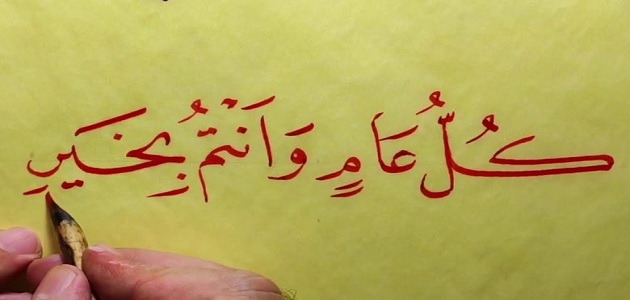 كُلُّ عَامٍ وَانْتُمُ بِخَيْرٍ